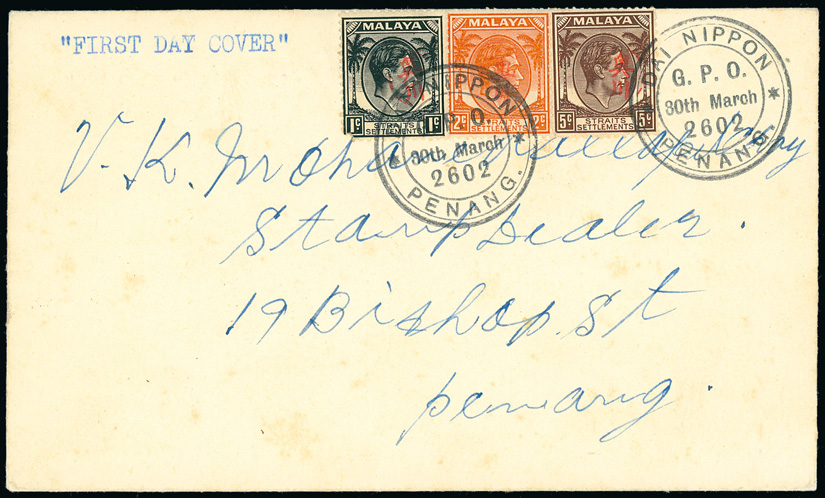 "FIRST DAY COVER"
MALAYA MALAYA MALAYA
1c STRAITS SETTLEMENTS 1c
2c STRAITS SETTLEMENTS 2c
5c STRAITS SETTLEMENTS 5c
NIPPON
P. O.
30th March
2602
PENANG.
DAI NIPPON
G. P. O.
30th March
2602
PENANG
V. K.
Stamp Dealer.
19 Bishop. St
penang.